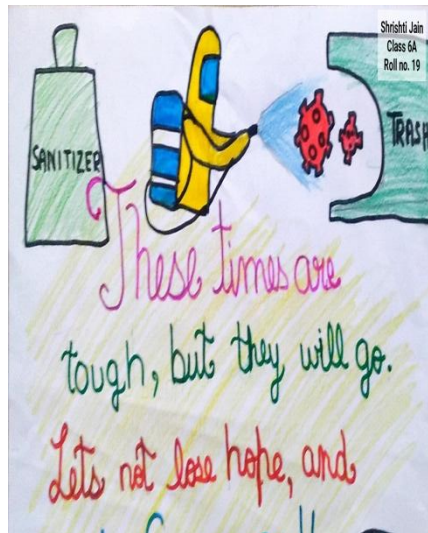 Shrishti Jain
Class 6A
Roll no. 19
SANITIZER
TRASH
These times are
tough, but they will go.
Lets not lose hope, and